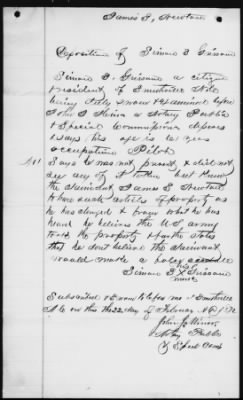 James S. Newton
Deposition of Simon D. Grissom
Simon D. Grissom a citizen
& resident of Smithville
being duly sworn & examined before
John a Notary Public
& Special Commissioner deposes
& says his age is years
occupation Pilot
Says he was not present & did not
see any of it taken but knew
the claimant James S Newton
to have such articles of property as
he has charged & from what he has
heard he believes the U.S. army
took the property & further states
that he dont believe the claimant
would make a false
Simon D X Grissom
his
mark
Subscribed & sworn to before me at Smithville
this the 22 day of February AD 1872
John
Notary Public
& Special Com